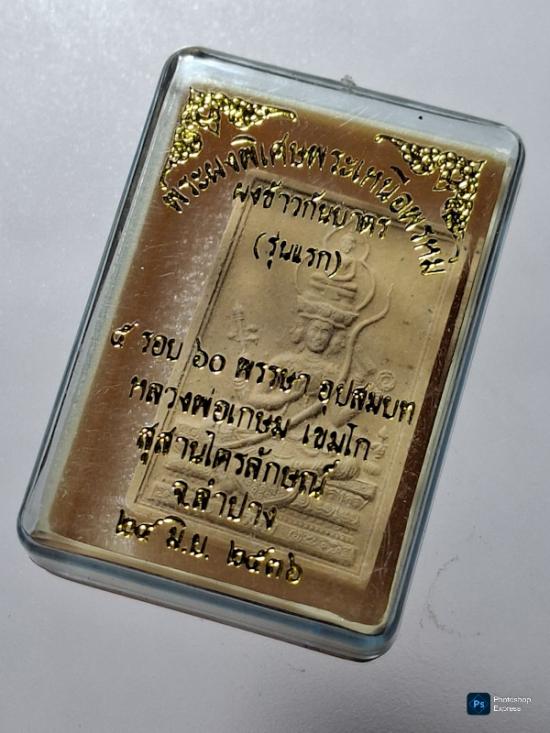 พระผงพิเศษพระเหนือพรหม
ผงข้าวก้นบาตร
(รุ่นแรก)
๕ รอบ ๖๐ พรรษา อุปสมบท
หลวงพ่อเกษม เขมโก
สุสานไตรลักษณ์
จ.ลำปาง
๒๔ มิ.ย. ๒๕๓๖
Ps Photoshop
Express